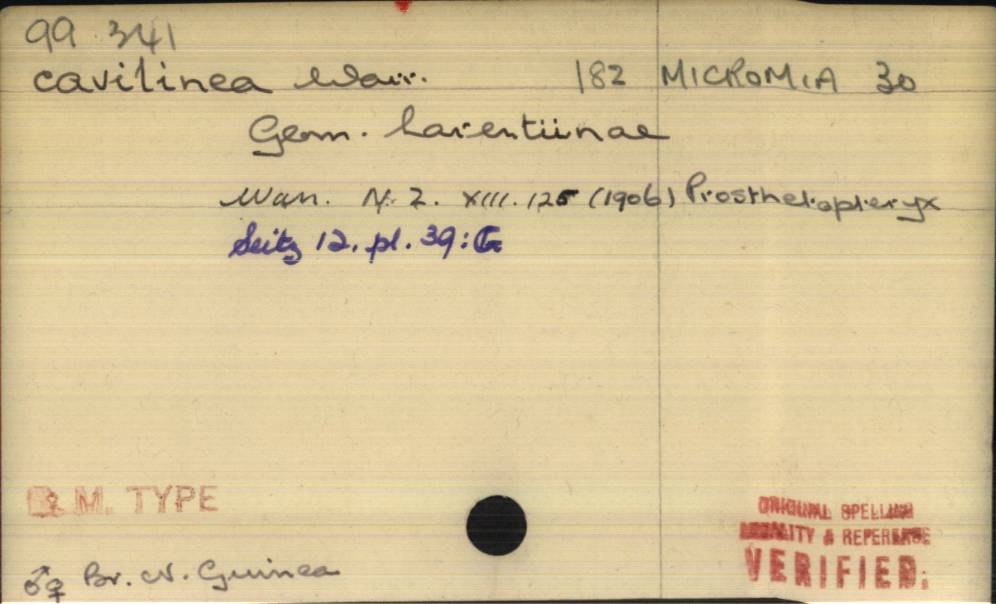 99 341
cavilinea Warr. 182 MICROMIA 30
Geom. Larentiinae
Warr. N. Z. XIII. 125 (1906) Prosthetopteryx
Seitz 12. pl. 39: G
B. M. TYPE
ORIGINAL SPELLING
LOCALITY & REFERENCE
VERIFIED.
♂♀ Br. N. Guinea